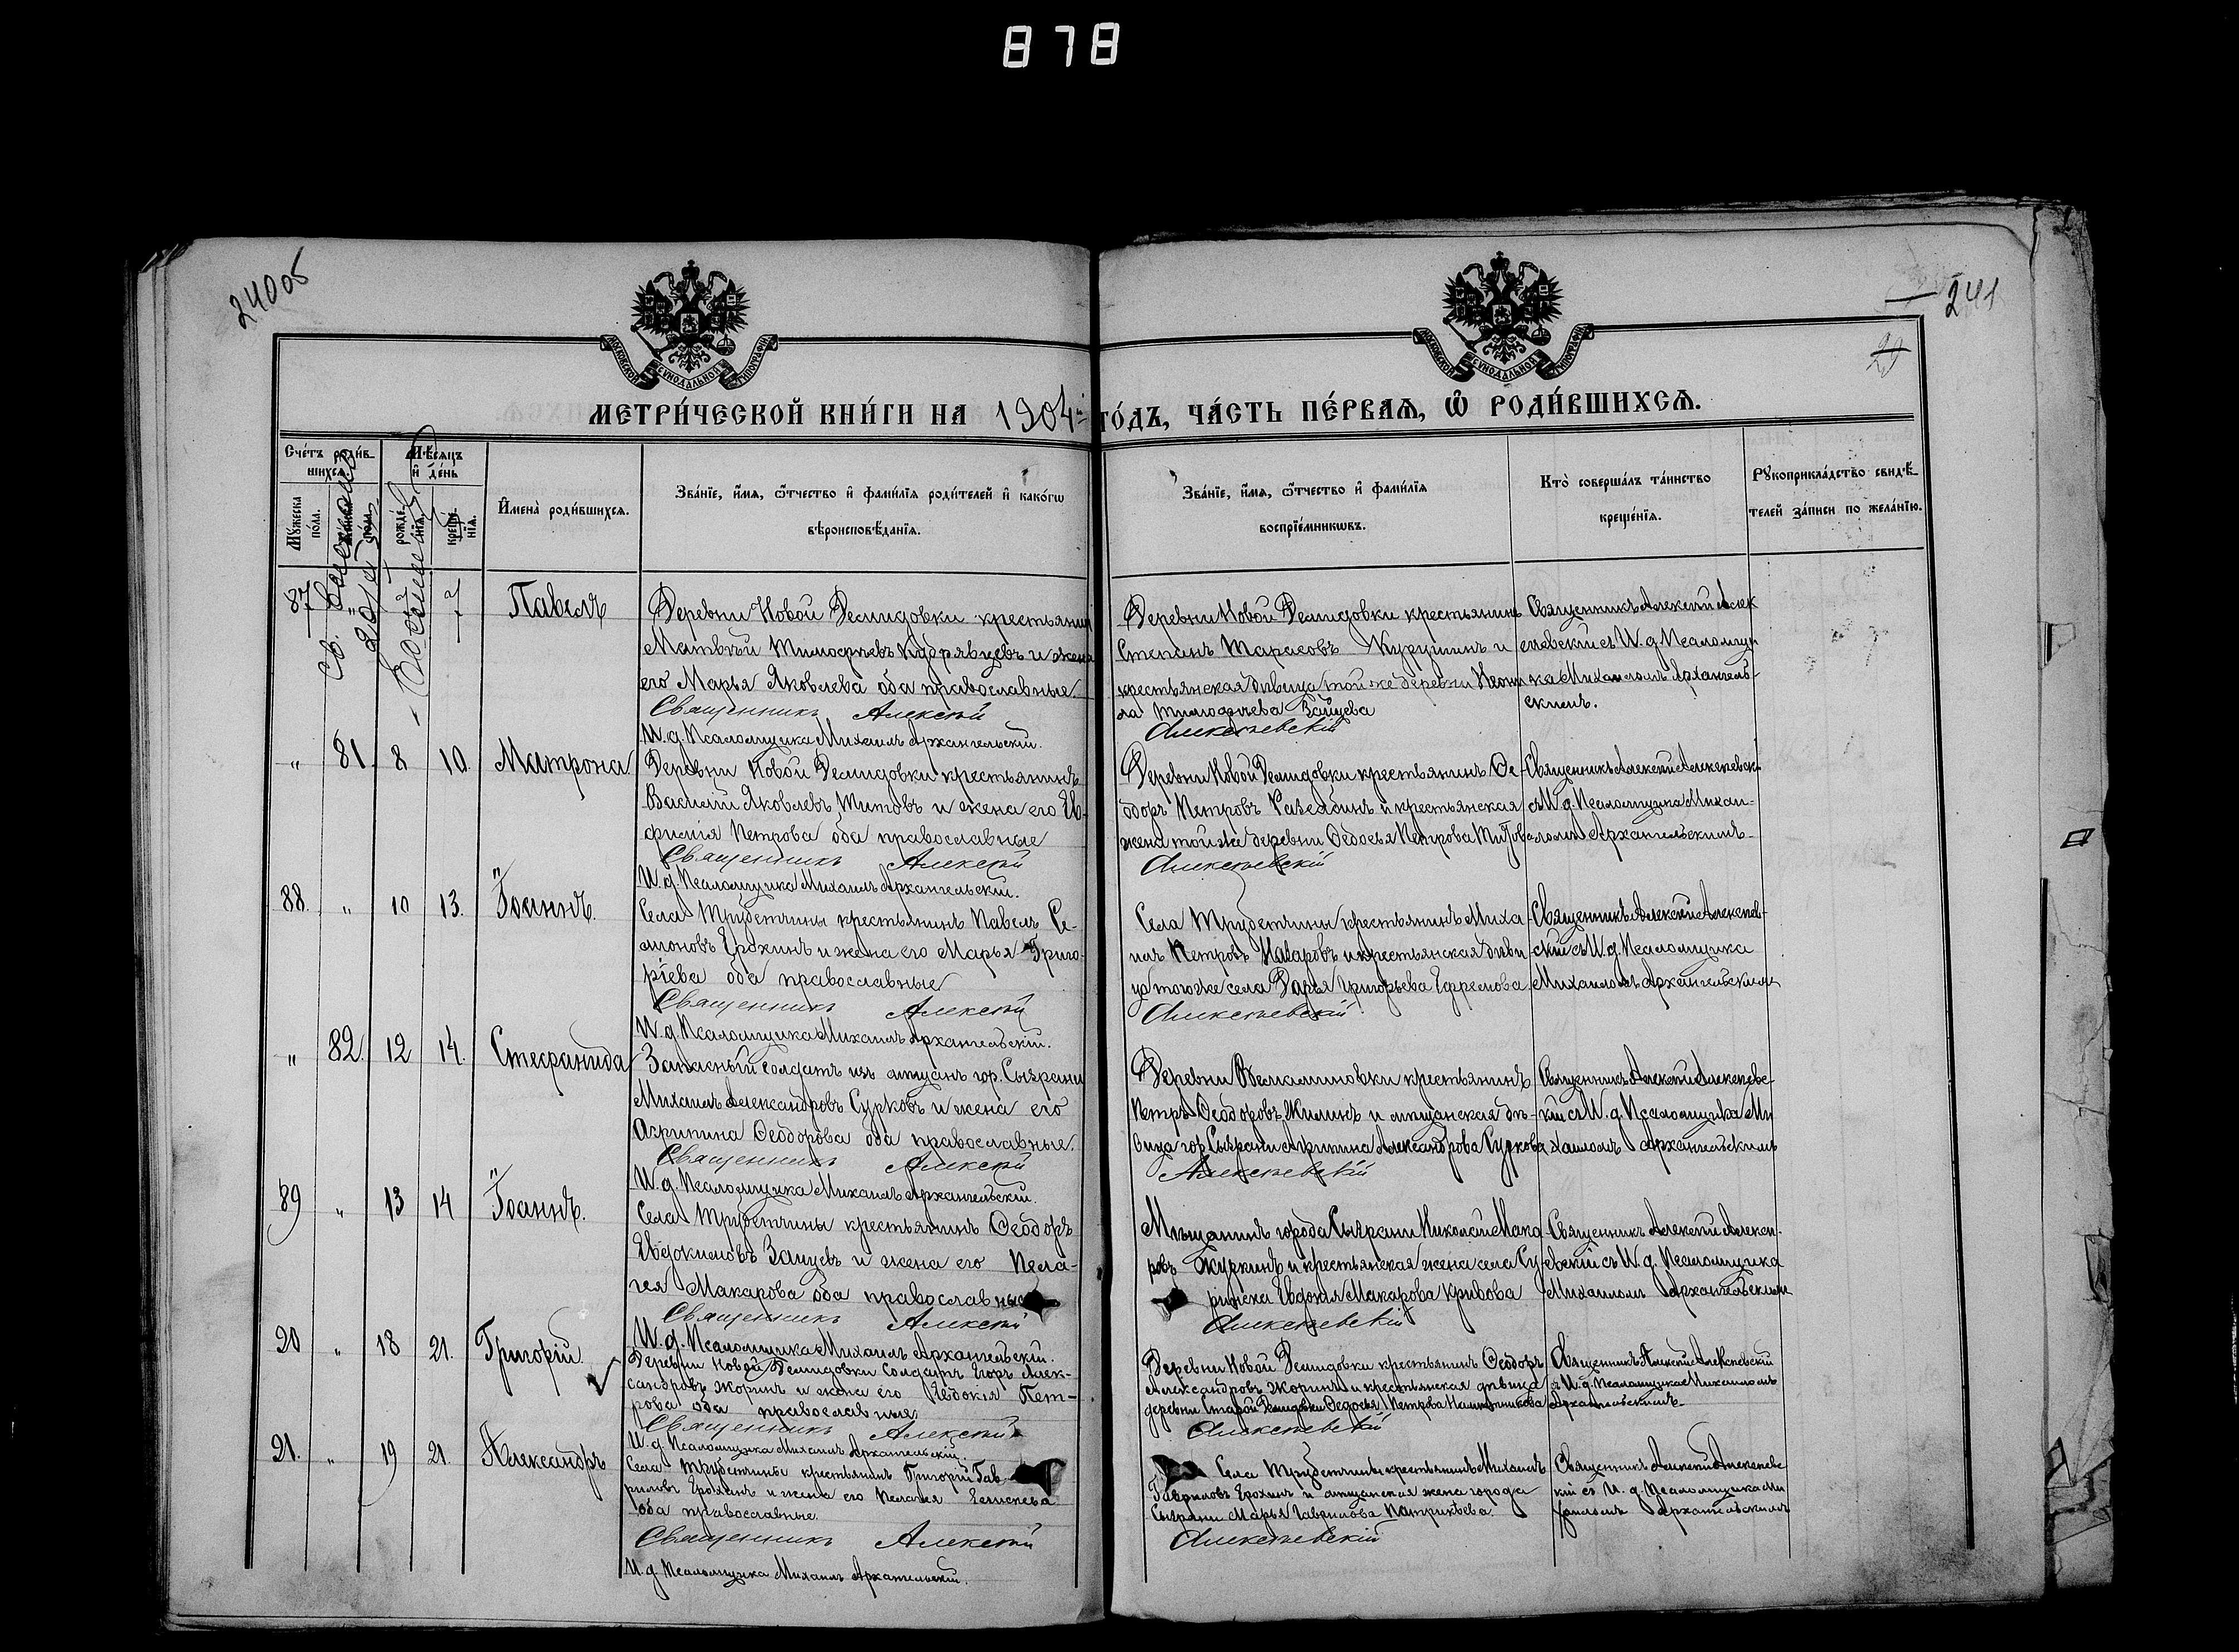 878
240об
241
29
МОСКОВСКОЙ СѴНОДАЛЬНОЙ ТИПОГРАФІИ
МОСКОВСКОЙ СѴНОДАЛЬНОЙ ТИПОГРАФІИ
МЕТРИ́ЧЕСКОЙ КНИ́ГИ НА 1904 й ГО́ДЪ, ЧА́СТЬ ПЕ́РВАѦ, Ѡ҆ РОДИ́ВШИХСѦ.
Сче́тъ роди́в-
шихсѧ.
Мѣ́сяцъ
и҆ де́нь
Му́жеска
по́ла.
рожде́-
нїѧ.
креще́-
нїѧ.
И҆мена̀ роди́вшихсѧ.
Зва́нїе, и҆́мѧ, ѻ҆́тчество и҆ фами́лїѧ роди́телей и҆ како́гѡ
вѣроисповѣ́данїѧ.
Зва́нїе, и҆́мѧ, ѻ҆́тчество и҆ фами́лїѧ
воспрїе́мникѡвъ.
Кто̀ соверша́лъ та́инство
креще́нїѧ.
Рꙋкоприкла́дство свидѣ́-
телей за́писи по жела́нїю.
87 " 7 7 Павелъ
Деревни Новой Демидовки крестьянинъ
Матвѣй Тимофѣевъ Кудрявцевъ и жена
его Марья Яковлева оба православные
Священникъ Алексѣй
И.д. Псаломщика Михаилъ Архангельскій.
Деревни Новой Демидовки крестьянинъ
Степанъ Тарасовъ Курушинъ и
крестьянская дѣвица той же деревни Неони
ла Тимофѣева Зайцева
Алексѣевскій
Священникъ Алексѣй Алек
сѣевскій съ И.д. Псаломщи
ка Михаиломъ Архангель-
скимъ.
" 81. 8 10. Матрона.
Деревни Новой Демидовки крестьянинъ
Василій Яковлевъ Титовъ и жена его Ев-
фимія Петрова оба православные
Священникъ Алексѣй
И.д. Псаломщика Михаилъ Архангельскій.
Деревни Новой Демидовки крестьянинъ Ѳе-
одоръ Петровъ и крестьянская
жена той же деревни Ѳедосья Петрова Титова
Алексѣевскій
Священникъ Алексѣй Алексѣевскій
съ И.д. Псаломщика Михаи-
ломъ Архангельскимъ
88. " 10 13. Іоаннъ.
Села Трубетчины крестьянинъ Павелъ Се-
моновъ Ерохинъ и жена его Марья Григо-
ріева оба православные
Священникъ Алексѣй
И.д. Псаломщика Михаилъ Архангельскій.
Села Трубетчины крестьянинъ Миха
илъ Петровъ и крестьянская дѣви
ца того же села Дарья Григорьева Ефремова
Алексѣевскій
Священникъ Алексѣй Алексѣев-
скій съ И.д. Псаломщика
Михаиломъ Архангельскимъ
" 82. 12 14. Стефанида
Запасный солдатъ изъ мѣщанъ гор. Сызрани
Михаилъ Александровъ Сурковъ и жена его
Агрипина Ѳеодорова оба православные.
Священникъ Алексѣй
И.д. Псаломщика Михаилъ Архангельскій.
Деревни крестьянинъ
Петръ Ѳеодоровъ Жилинъ и мѣщанская дѣ-
вица гор. Сызрани Агрипина Александрова Суркова
Алексѣевскій
Священникъ Алексѣй Алексѣевс-
кій съ И.д. Псаломщика Ми
хаиломъ Архангельскимъ
89 " 13 14 Іоаннъ.
Села Трубетчины крестьянинъ Ѳеодоръ
Евдокимовъ Зайцевъ и жена его Пела-
гея Макарова оба православные
Священникъ Алексѣй
И.д. Псаломщика Михаилъ Архангельскій.
Мѣщанинъ города Сызрани Николай Мака
ровъ Журкинъ и крестьянская жена села Су
ринска Евдокія Макарова Кривова
Алексѣевскій
Священникъ Алексѣй Алексѣ-
евскій съ И.д. Псаломщика
Михаиломъ Архангельскимъ
20 " 18 21. Григорій.
Деревни Новой Демидовки Солдатъ Егоръ Алек-
сандровъ Жоринъ и жена его Евдокія Пет-
рова оба православные
Священникъ Алексѣй
И.д. Псаломщика Михаилъ Архангельскій.
Деревни Новой Демидовки крестьянинъ Ѳеодоръ
Александровъ Жоринъ и крестьянская дѣвица
деревни Старой Демидовки Ѳедосья Петрова
Алексѣевскій
Священникъ Алексѣй Алексѣевскій
съ И.д. Псаломщика Михаиломъ
Архангельскимъ
21. " 19 21. Александръ
Села Трубетчины крестьянинъ Григорій Гав
риловъ Ерохинъ и жена его Пелагея Елисѣева
оба православные.
Священникъ Алексѣй
И.д. Псаломщика Михаилъ Архангельскій.
Села Трубетчины крестьянинъ Михаилъ
Гавриловъ Ерохинъ и мѣщанская жена города
Сызрани Марья Гаврилова Патрикѣева.
Алексѣевскій
Священникъ Алексѣй Алексѣевс-
кій съ И.д. Псаломщика Ми
хаиломъ Архангельскимъ